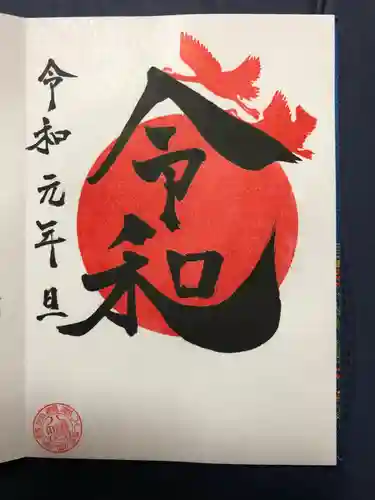 令和
令和元年旦